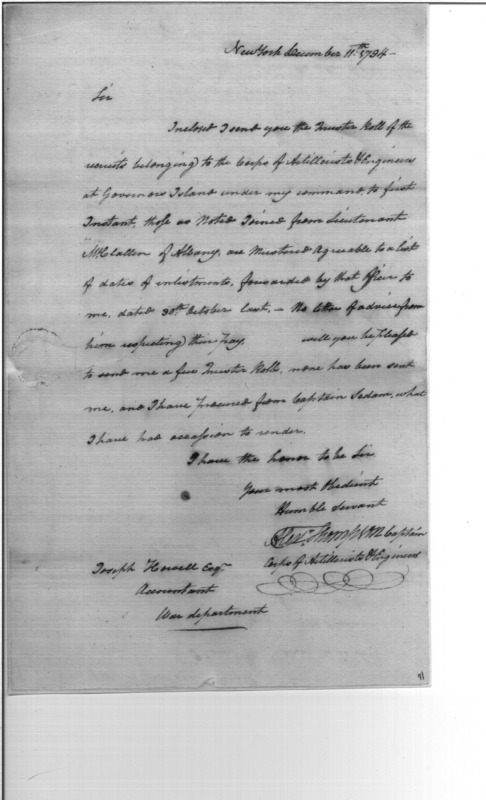 New York December 11th 1794 -
Sir
Inclosed I send you the Muster Roll of the
recruits belonging to the Corps of Artillerists & Engineers
at Governors Island under my command, to first
Instant, those as Noted Joined from Lieutenant
McClallen of Albany, are Mustered agreable to a list
of dates of inlistments, forwarded by that officer to
me, dated 30th October last, - No letter of advice from
him respecting their pay. will you be pleased
to send me a few Muster Rolls, none has been sent
me, and I have procured from Captain Sedam, what
I have had occassion to render.
I have the honor to be Sir
Your most Obedient
Humble Servant
Alexr. Thompson Captain
Corps of Artillerists & Engineers
Joseph Howell Esqr
Accountant
War department